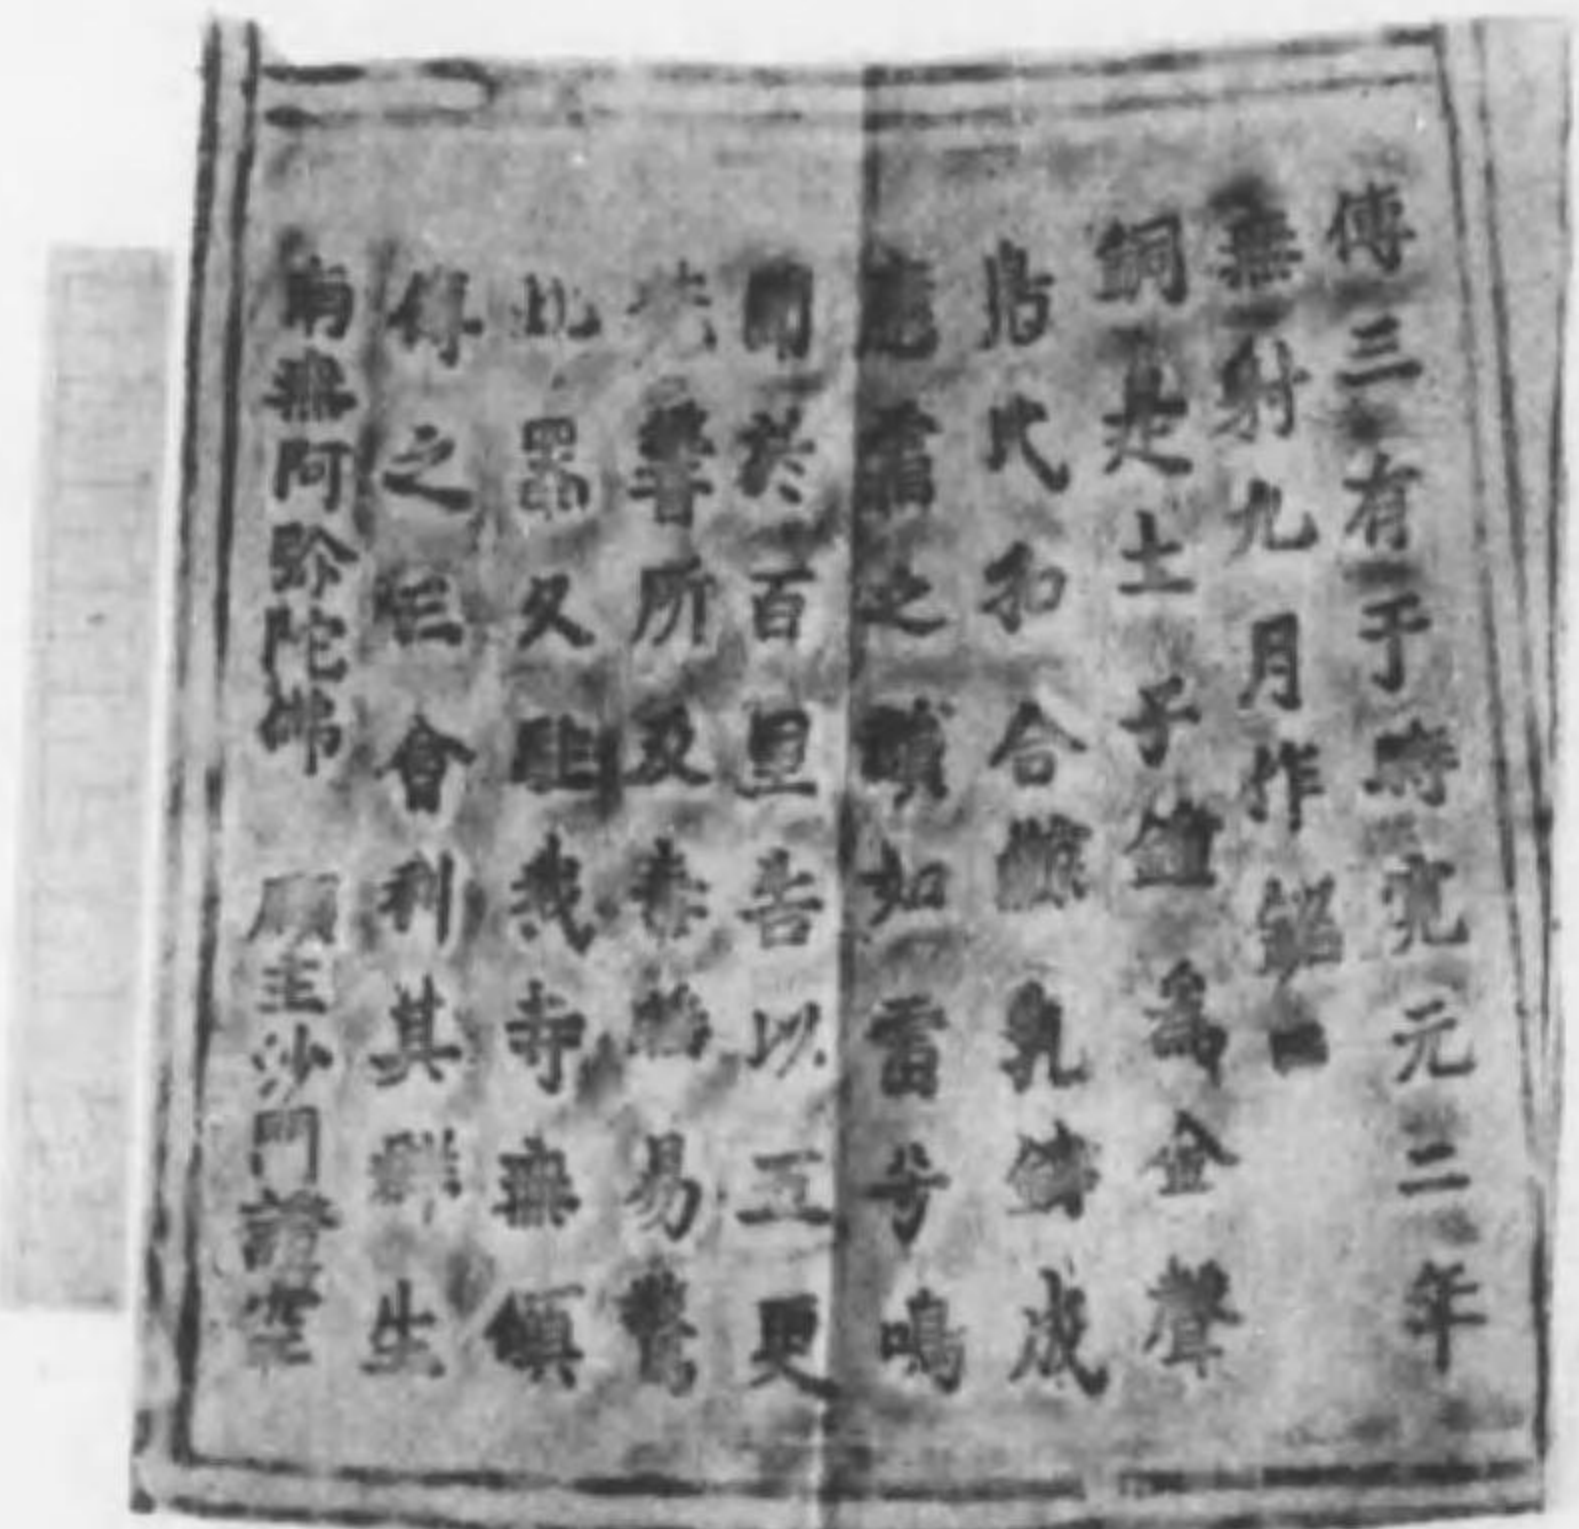 傳三有于時寛元二年
無射九月作銘曰
銅是土子鐘為金聲
氏和合乳鑄成
霜之如雷兮鳴
聞於百里告以五更
響所及易驚
此器久我寺無傾
傳之三會利其群生
南無阿弥陀佛 願主沙門證空